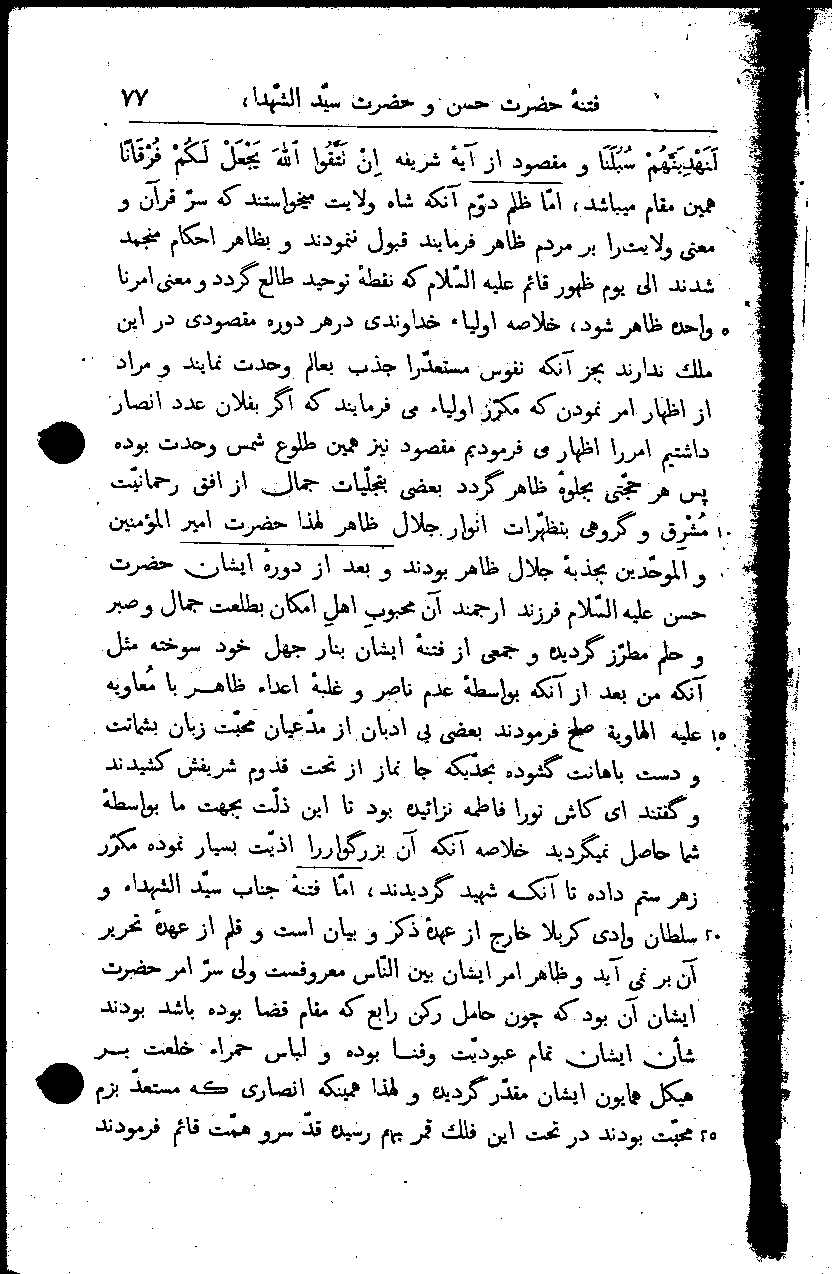 فتنهٔ حضرت حسن و حضرت سیّد الشّهداء، ٧٧
لَنَهْدِیَنَّهُمْ سُبُلَنَا و مقصود از آیهٔ شریفه اِنْ تَتَّقُوا ٱللّٰهَ یَجْعَلْ لَکُمْ فُرْقَانًا
همین مقام میباشد، امّا ظلم دوّم آنکه شاه ولایت میخواستند که سرّ قرآن و
معنی ولایت‌را بر مردم ظاهر فرمایند قبول ننمودند و بظاهر احکام منجمد
شدند الی یوم ظهور قائم علیه السّلام که نقطهٔ توحید طالع گردد و معنی امرنا
٥ واحده ظاهر شود، خلاصه اولیاء خداوندی درهر دوره مقصودی در این
ملك ندارند بجز آنکه نفوس مستعدّرا جذب بعالم وحدت نمایند و مراد
از اظهار امر نمودن که مکرّز اولیاء می فرمایند که اگر بفلان عدد انصار
داشتیم امررا اظهار می فرمودیم مقصود نیز همین طلوع شمس وحدت بوده
پس هر حجّتی بجلوهٔ ظاهر گردد بعضی بتجلّیات جمال از افق رحمانیّت
١٠ مُشْرِق و گروهی بتظهّرات انوار جلال ظاهر لهذا حضرت امیر المؤمنین
و الموحّدین بجذبهٔ جلال ظاهر بودند و بعد از دورهٔ ایشان حضرت
حسن علیه السّلام فرزند ارجمند آن محبوبِ اهلِ امکان بطلعت جمال و صبر
و حلم مطرّز گردیده و جمعی از فتنهٔ ایشان بنار جهل خود سوخته مثل
آنکه من بعد از آنکه بواسطهٔ عدم ناصر و غلبهٔ اعداء ظاهر با مُعاویه
١٥ علیه الهاویة صلح فرمودند بعضی بی ادبان از مدّعیان محبّت زبان بشماتت
و دست باهانت گشوده بحدّیکه جا نماز از تحت قدوم شریفش کشیدند
و گفتند ای کاش تورا فاطمه نزائیده بود تا این ذلّت بجهت ما بواسطهٔ
شما حاصل نمیگردید خلاصه آنکه آن بزرگواررا اذیّت بسیار نموده مکرّر
زهر ستم داده تا آنکه شهید گردیدند، امّا فتنهٔ جناب سیّد الشّهداء و
٢٠ سلطان وادی کربلا خارج از عهدهٔ ذکر و بیان است و قلم از عهدهٔ تحریر
آن بر نمی آید و ظاهر امر ایشان بین النّاس معروفست ولی سرّ امر حضرت
ایشان آن بود که چون حامل رکن رابع که مقام قضا بوده باشد بودند
شأن ایشان تمام عبودیّت وفنا بوده و لباس حمراء خلعت بر
هیکل همایون ایشان مقدّر گردیده و لهذا همینکه انصاری که مستعدّ بزم
٢٥ محبّت بودند در تحت این فلك قمر بهم رسیده قدّ سرو همّت قائم فرمودند